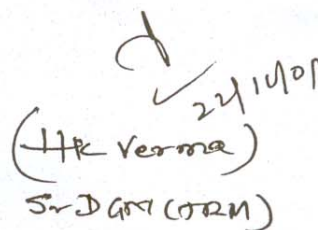 22/11/01
(HK Verma)
Sr DGM (ARM)